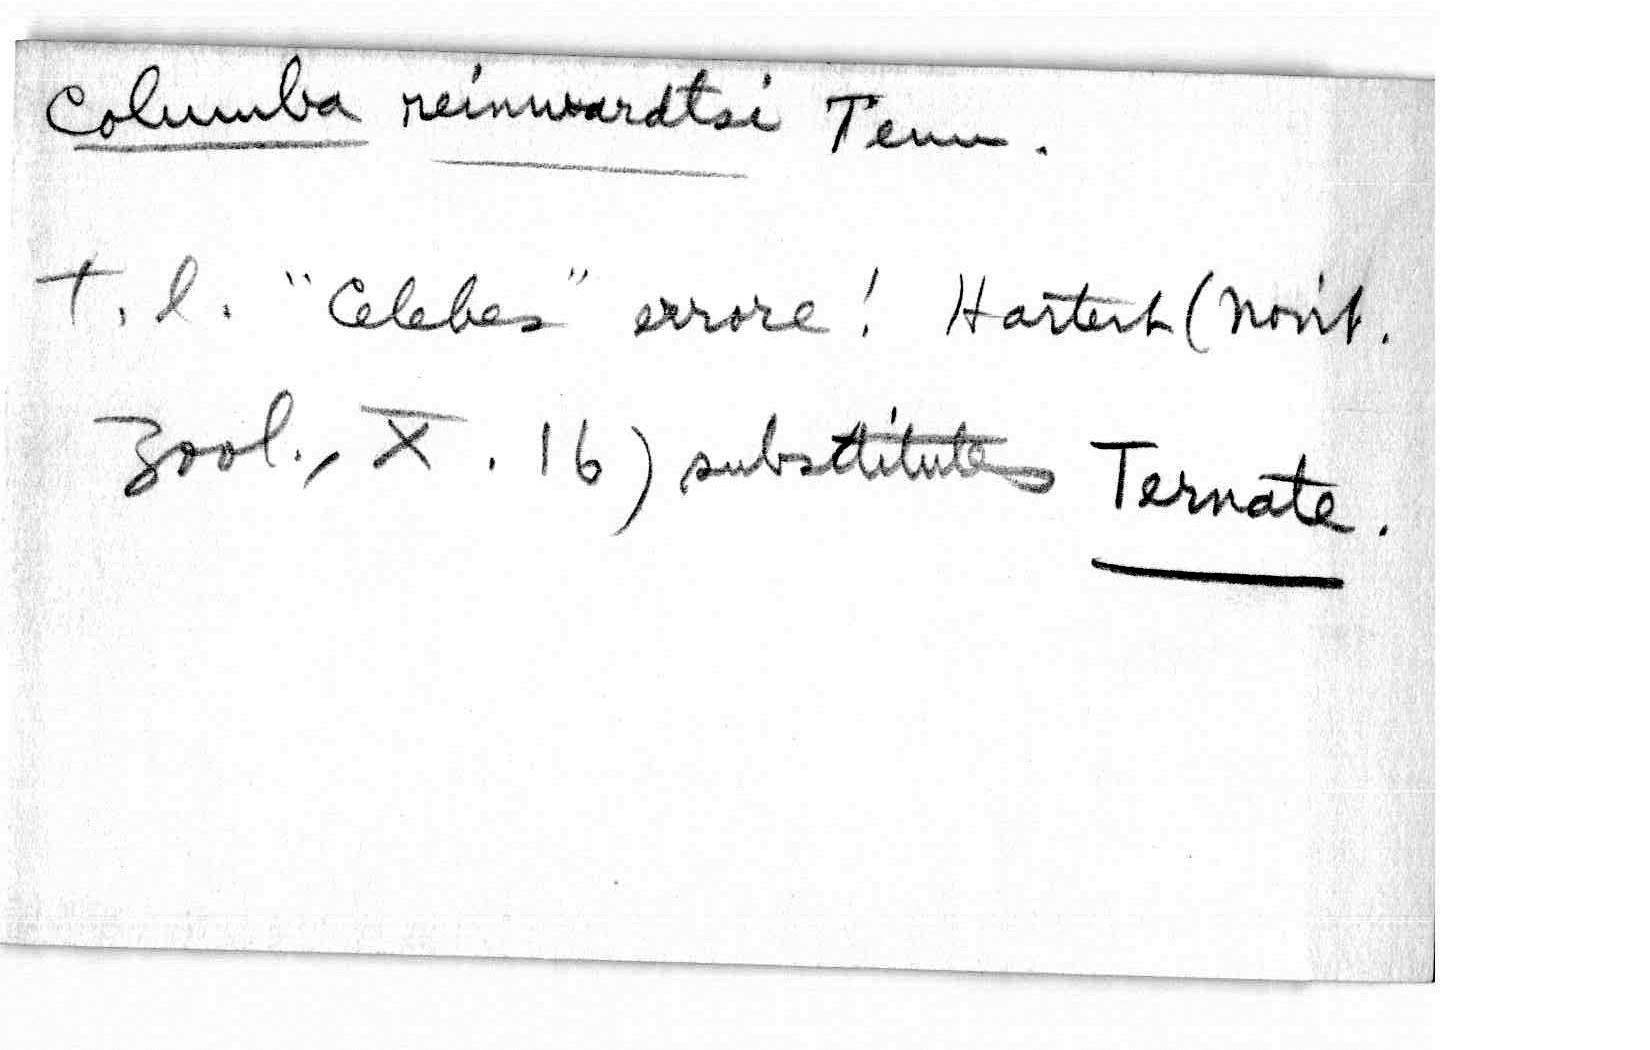 Columba reinwardtsi Temm.
T. l. "Celebes" errore! Hartert (Novit.
Zool., X. 16) substitutes Ternate.